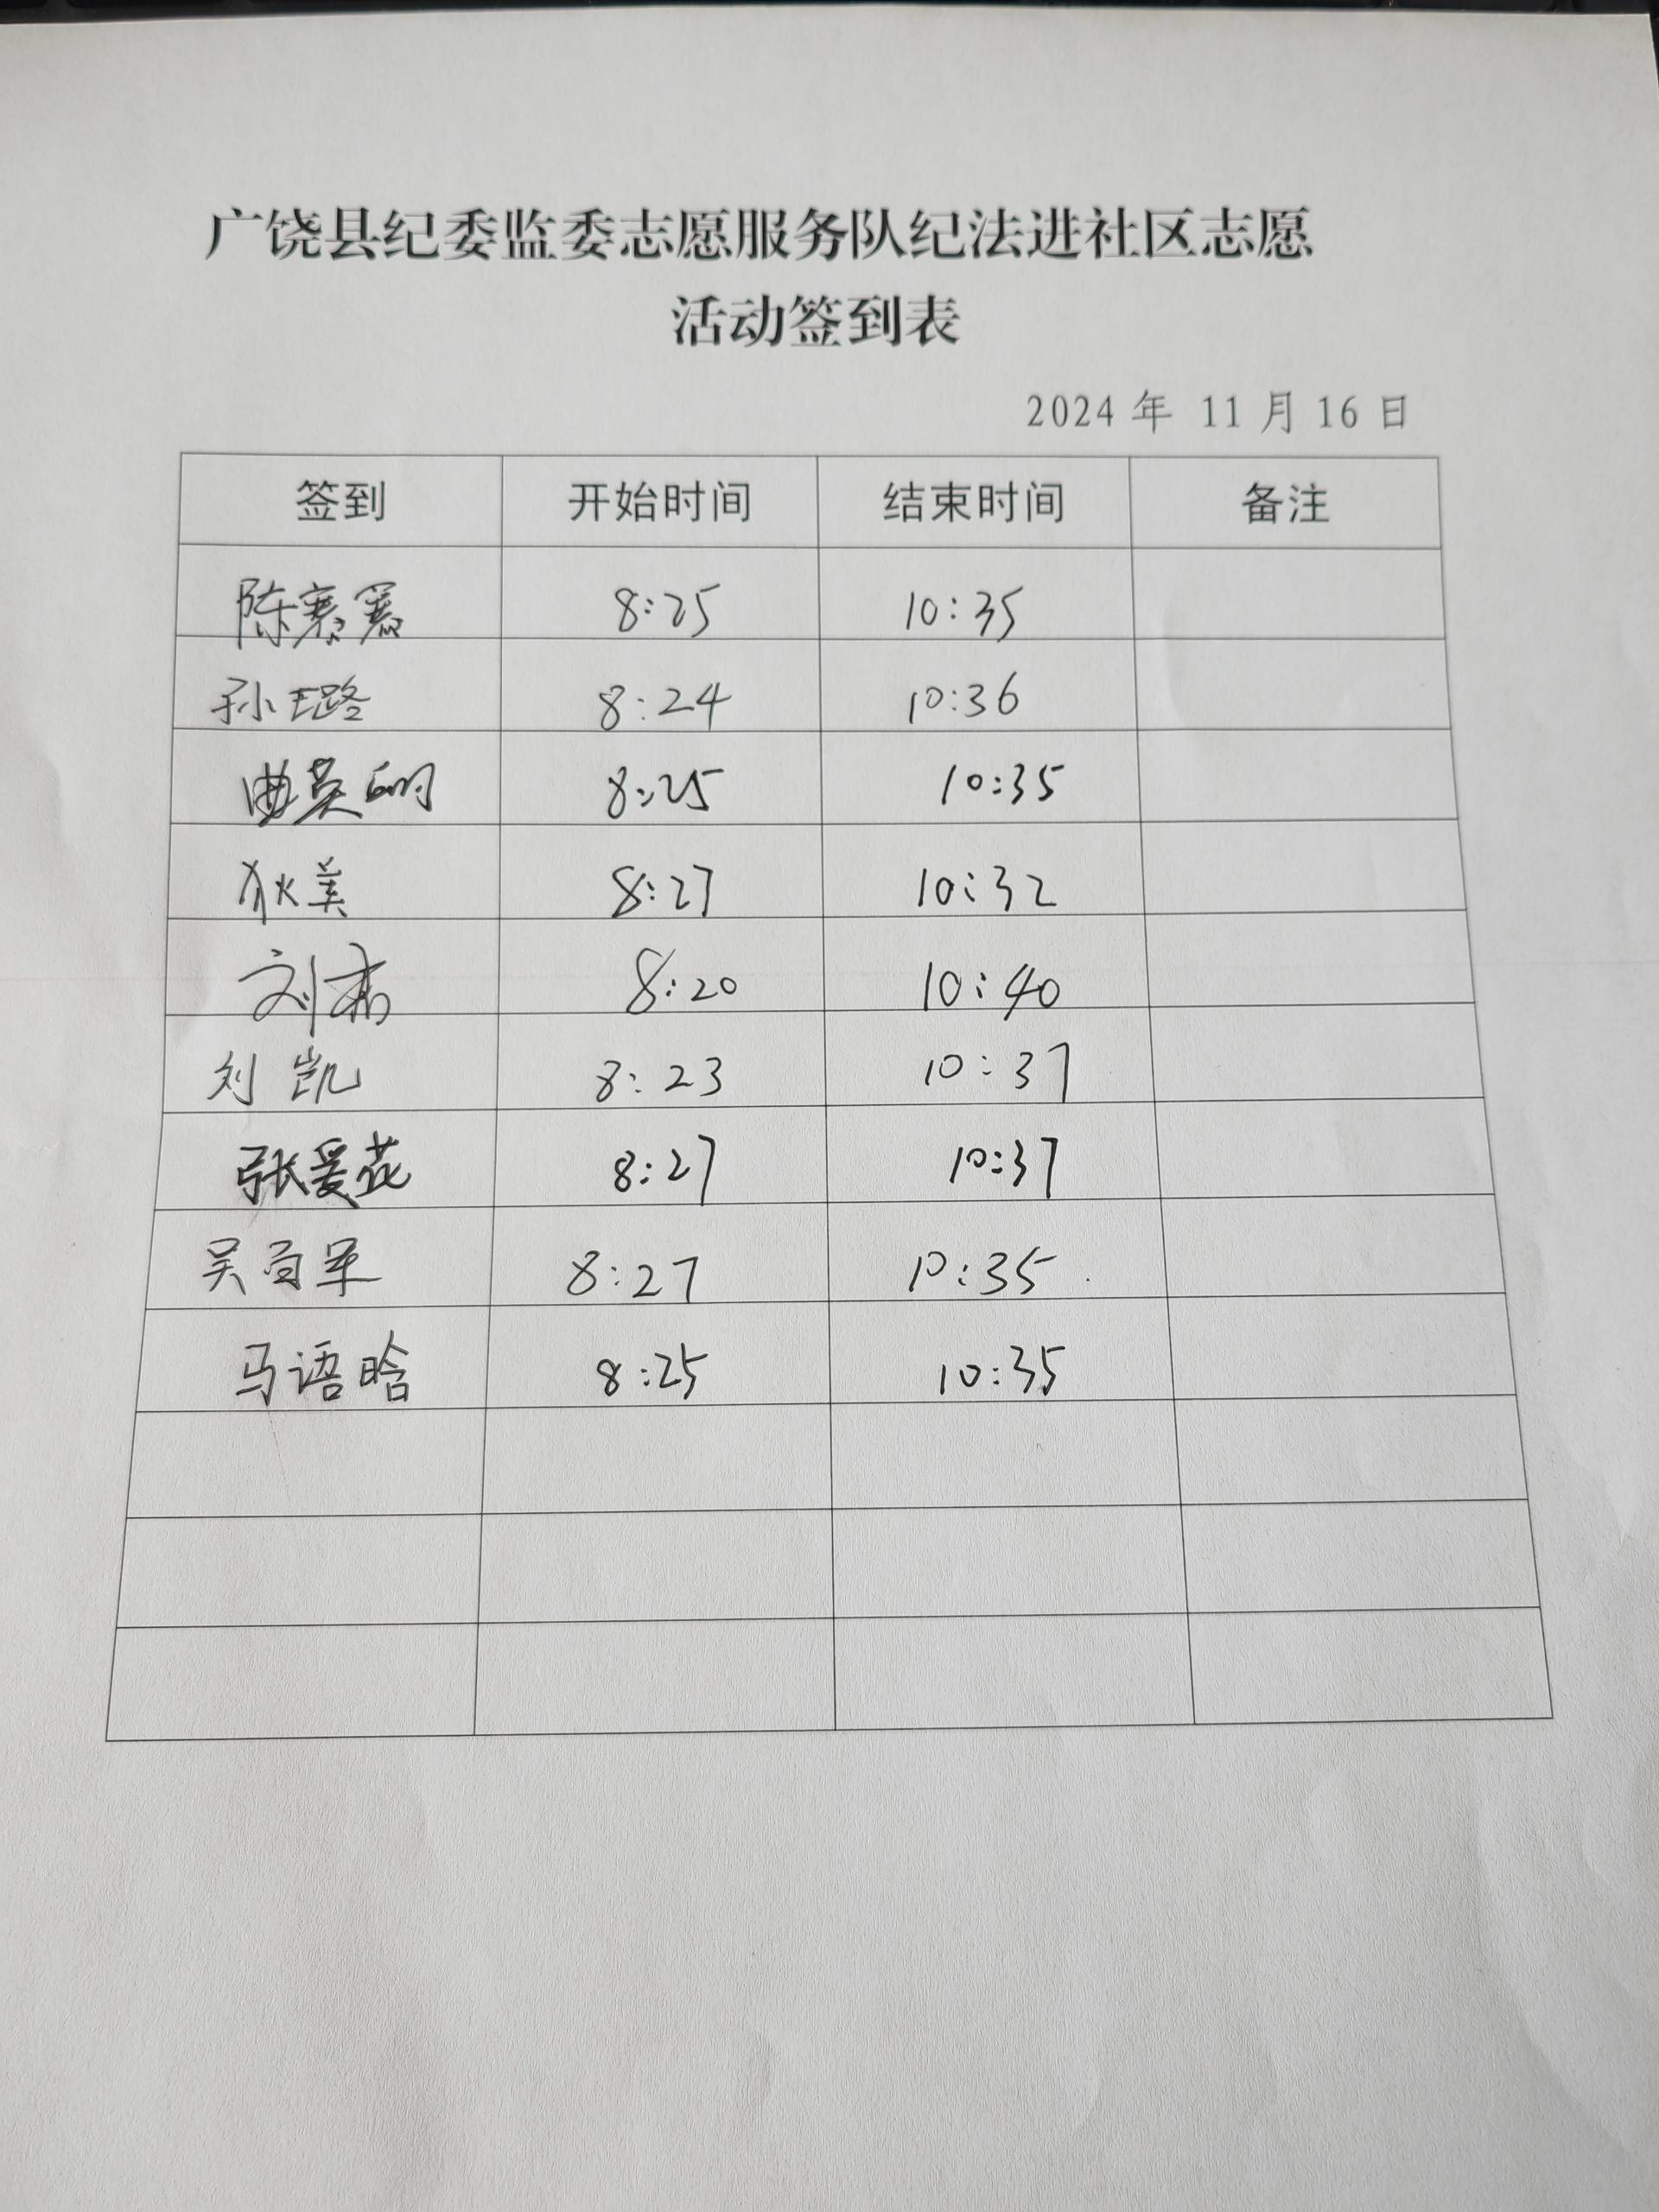 广饶县纪委监委志愿服务队纪法进社区志愿
活动签到表
2024 年 11 月 16 日
签到 开始时间 结束时间 备注
陈赛赛 8:25 10:35
孙璐 8:24 10:36
曲英明 8:25 10:35
狄美 8:27 10:32
刘 8:20 10:40
刘凯 8:23 10:37
张爱花 8:27 10:37
吴百军 8:27 10:35
马语晗 8:25 10:35